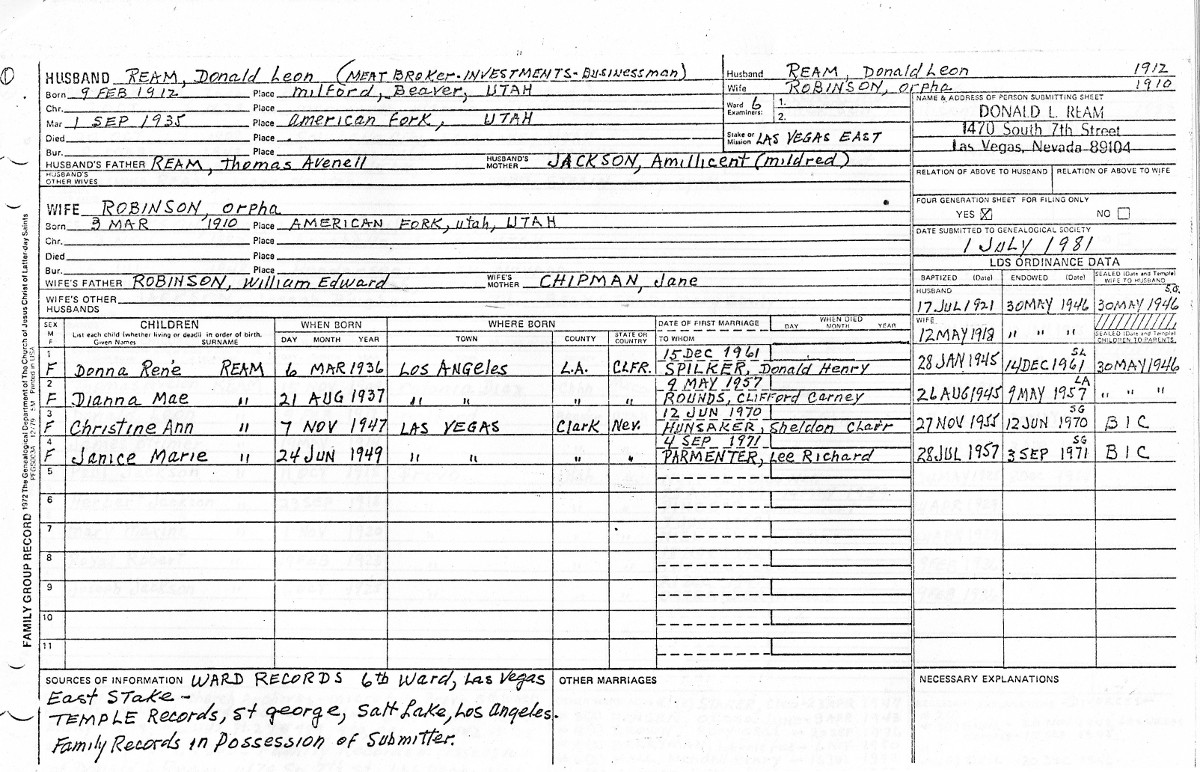 HUSBAND REAM, Donald Leon (MEAT BROKER-INVESTMENTS-Businessman)
Born 9 FEB 1912 Place milford, Beaver, UTAH
Chr. Place
Mar 1 SEP 1935 Place american Fork, UTAH
Died Place
Bur. Place
HUSBAND'S FATHER REAM, Thomas Avenell HUSBAND'S MOTHER JACKSON, Amillicent (mildred)
HUSBAND'S OTHER WIVES
Husband REAM, Donald Leon 1912
Wife ROBINSON, orpha 1910
Ward 6 1.
Examiners: 2.
Stake or Mission LAS VEGAS EAST
NAME & ADDRESS OF PERSON SUBMITTING SHEET
DONALD L. REAM
1470 South 7th Street
Las Vegas, Nevada 89104
RELATION OF ABOVE TO HUSBAND RELATION OF ABOVE TO WIFE
FOUR GENERATION SHEET FOR FILING ONLY
YES ☒ NO ☐
DATE SUBMITTED TO GENEALOGICAL SOCIETY
1 JULY 1981
WIFE ROBINSON, orpha
Born 3 MAR 1910 Place AMERICAN FORK, utah, UTAH
Chr. Place
Died Place
Bur. Place
WIFE'S FATHER ROBINSON, William Edward WIFE'S MOTHER CHIPMAN, Jane
WIFE'S OTHER HUSBANDS
LDS ORDINANCE DATA
BAPTIZED (Date) ENDOWED (Date) SEALED (Date and Temple) WIFE TO HUSBAND
HUSBAND S.G.
17 JUL 1921 30 MAY 1946 30 MAY 1946
WIFE
12 MAY 1918 " " " SEALED (Date and Temple) CHILDREN TO PARENTS
SEX M F CHILDREN List each child (whether living or dead) in order of birth. Given Names SURNAME WHEN BORN DAY MONTH YEAR WHERE BORN TOWN COUNTY STATE OR COUNTRY DATE OF FIRST MARRIAGE TO WHOM WHEN DIED DAY MONTH YEAR
1 15 Dec 1961 SL
F Donna René REAM 6 MAR 1936 LOS ANGELES L.A. CLFR. SPILKER, Donald Henry 28 JAN 1945 14 DEC 1961 30 MAY 1946
2 9 MAY 1957 LA
F Dianna Mae " 21 AUG 1937 " " " " ROUNDS, Clifford Carney 26 AUG 1945 9 MAY 1957 " " "
3 12 JUN 1970 SG
F Christine Ann " 7 NOV 1947 LAS VEGAS Clark Nev. HUNSAKER, Sheldon Clarr 27 NOV 1955 12 JUN 1970 BIC
4 4 SEP 1971 SG
F Janice Marie " 24 JUN 1949 " " " " PARMENTER, Lee Richard 28 JUL 1957 3 SEP 1971 BIC
5
6
7
8
9
10
11
SOURCES OF INFORMATION WARD RECORDS 6th Ward, Las Vegas
East Stake-
TEMPLE Records, St george, Salt Lake, Los Angeles.
Family Records in Possession of Submitter.
OTHER MARRIAGES
NECESSARY EXPLANATIONS
FAMILY GROUP RECORD 1972 The Genealogical Department of The Church of Jesus Christ of Latter-day Saints
PFGS003A 12/79 5M Printed in USA